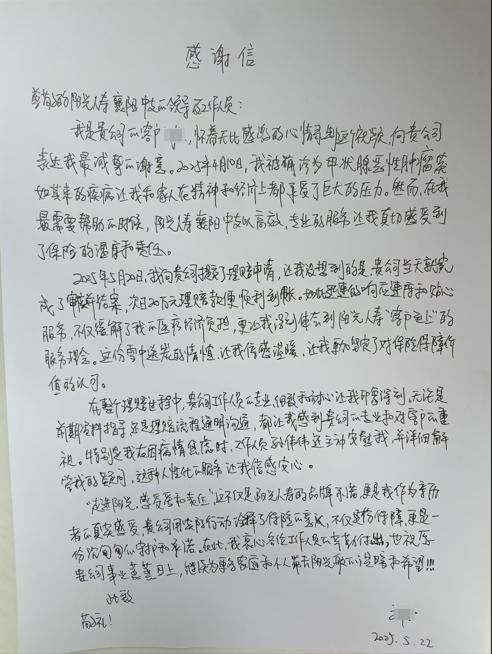 感谢信
尊敬的阳光人寿襄阳中支的领导及工作人员：
我是贵公司的客户，怀着无比感激的心情写下这封信，向贵公司
表达我最诚挚的谢意。2025年4月10日，我被确诊为甲状腺恶性肿瘤，突
如其来的疾病让我和家人在精神和经济上都承受了巨大的压力。然而，在我
最需要帮助的时候，阳光人寿襄阳中支以高效、专业的服务让我真切感受到
了保险的温度和责任。
2025年5月20日，我向贵公司提交了理赔申请，让我没想到的是，贵公司当天就完
成了审核结案，次日20万元理赔款便顺利到账。如此迅速的响应速度和贴心
服务，不仅缓解了我的医疗经济负担，更让我深刻体会到阳光人寿"客户至上"的
服务理念。这份雪中送炭的情谊，让我倍感温暖，让我更加坚定了对保险保障价
值的认可。
在整个理赔过程中，贵公司工作人员的专业、细致和耐心让我印象深刻。无论是
前期资料指导，还是理赔流程透明沟通，都让我感到贵公司的专业和对客户的重
视。特别是我在因病情焦虑时，工作人员的伟伟还主动安慰我，并详细解
答我的疑问，这种人性化的服务让我倍感安心。
"走进阳光，感受爱和责任"这不仅是阳光人寿的品牌承诺，更是我作为亲历
者的真实感受。贵公司用实际行动诠释了保险的意义，不仅是份保障，更是一
份沉甸甸的守护和承诺。在此，我衷心感谢工作人员的辛苦付出，也祝愿
贵公司事业蒸蒸日上，继续为更多家庭和个人带去阳光般的温暖和希望!!!
此致
敬礼!
2025.5.22